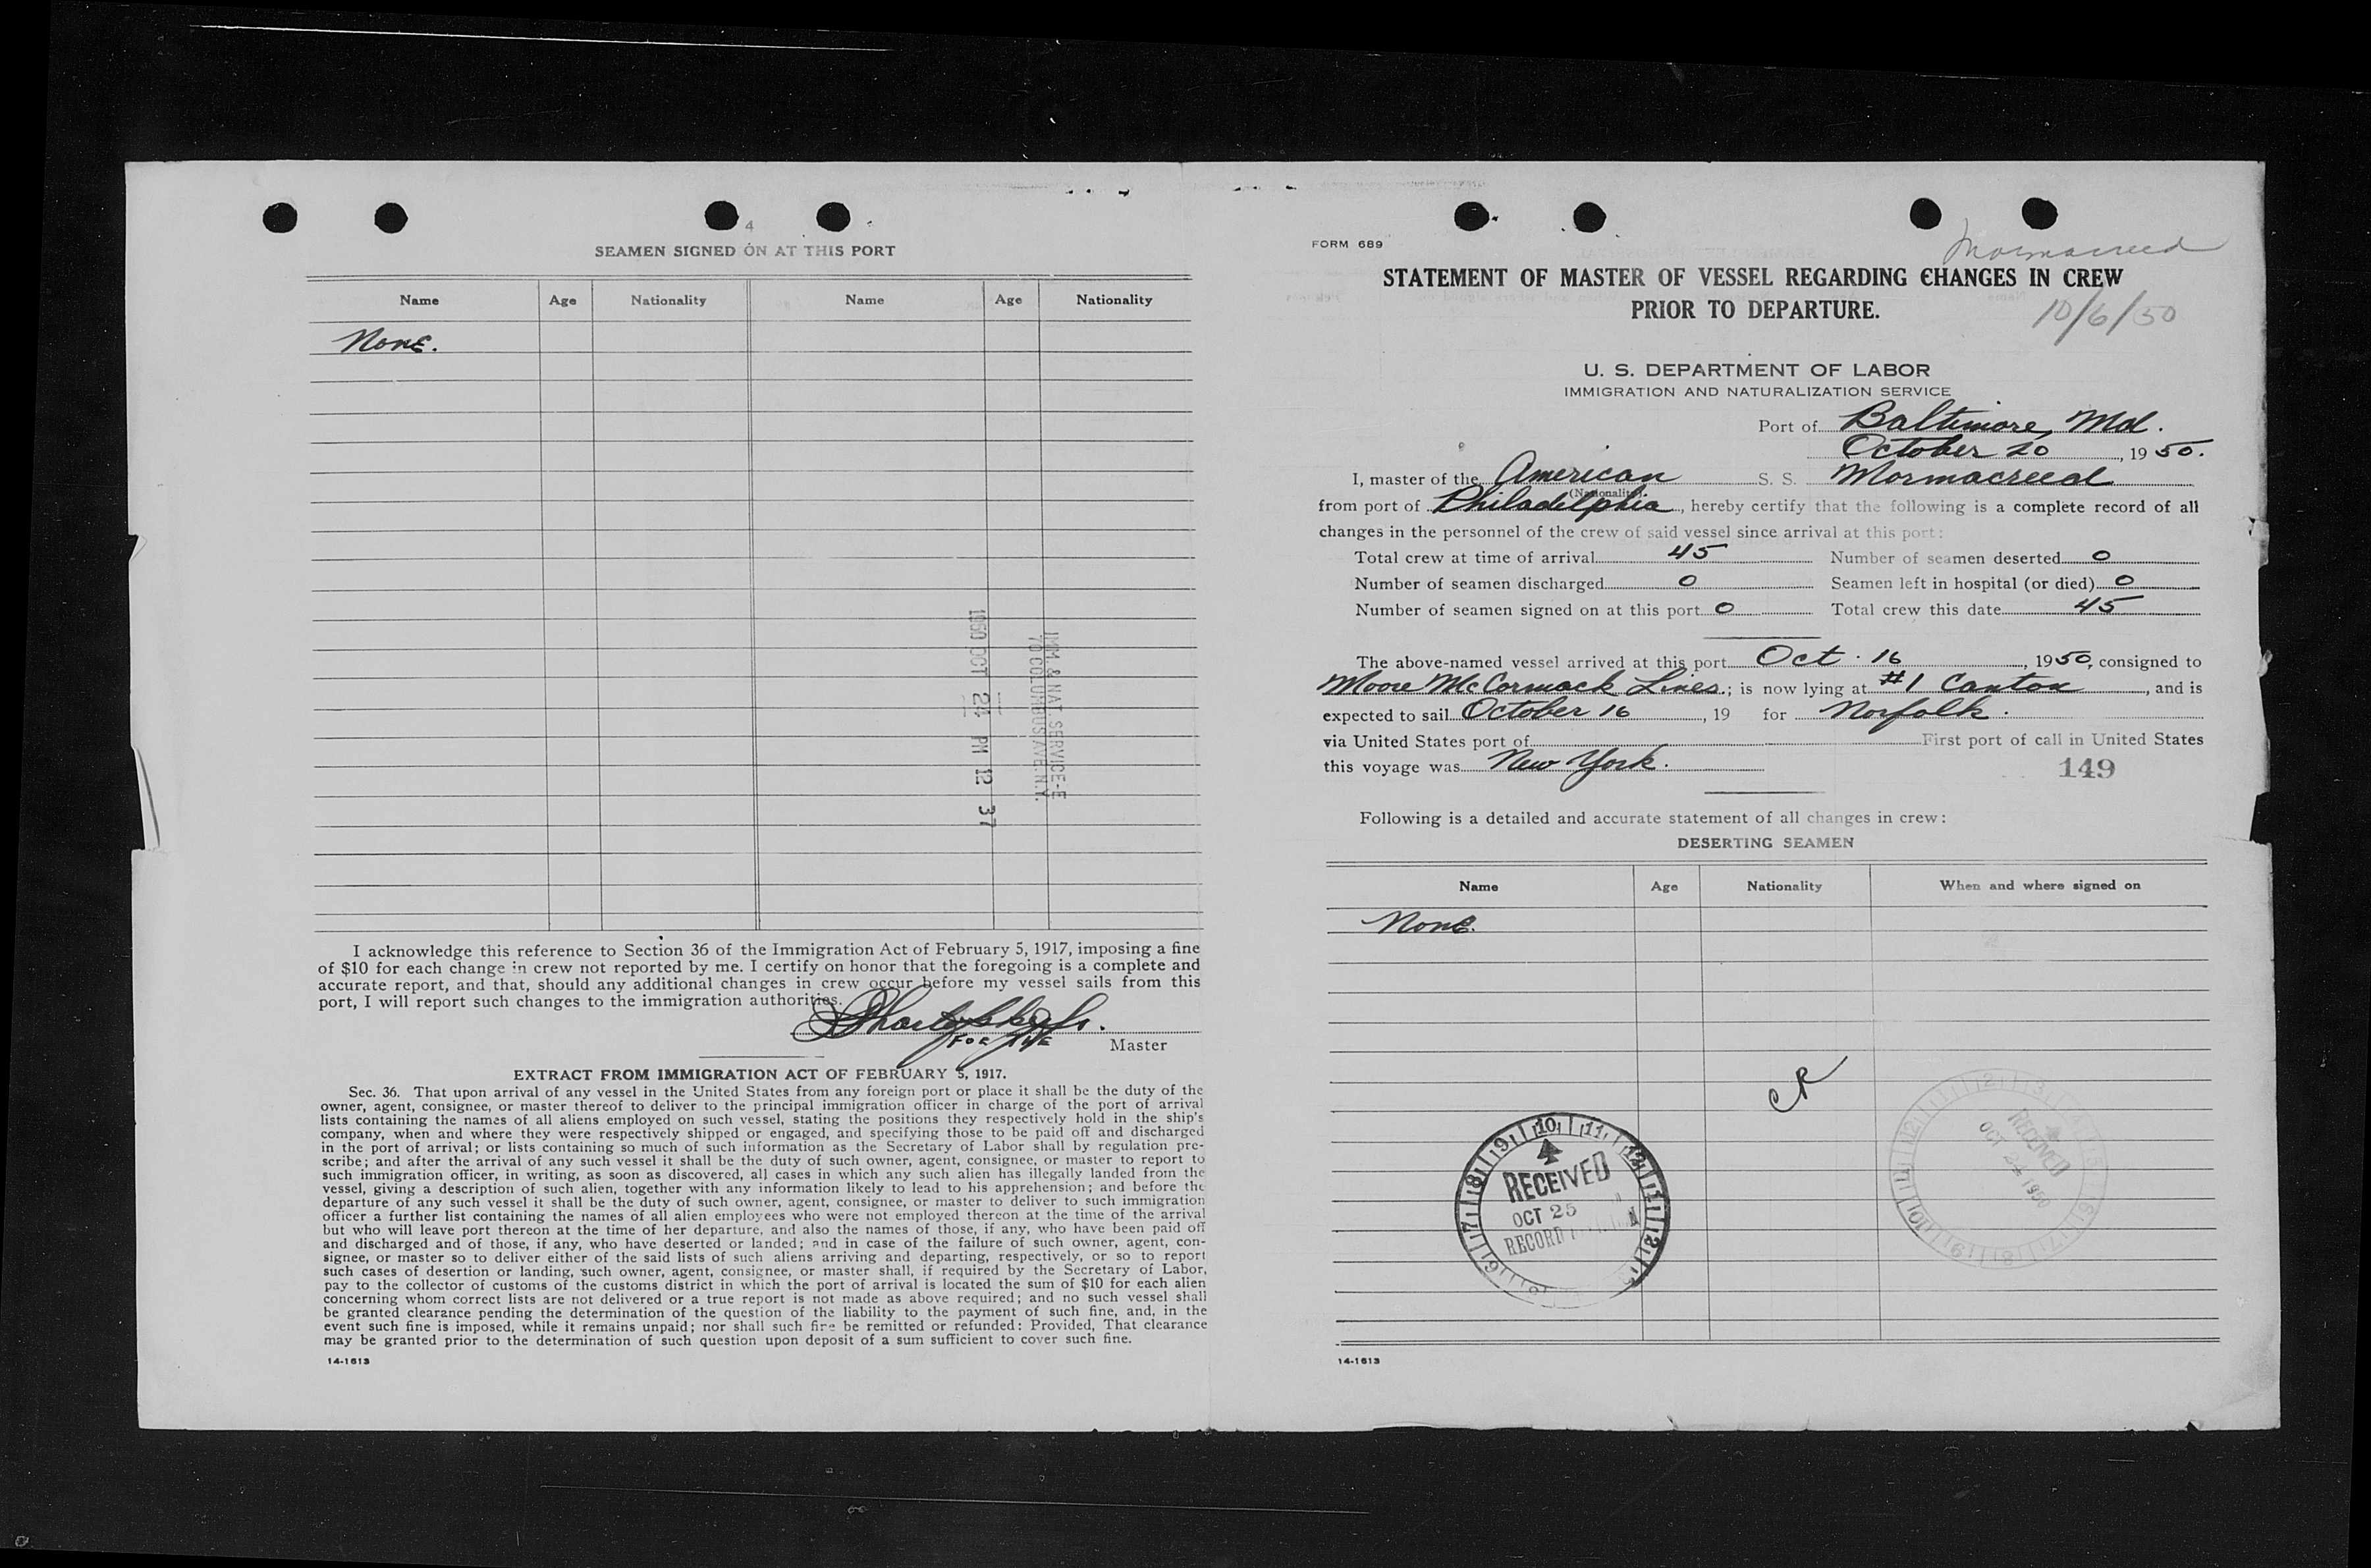 4
SEAMEN SIGNED ON AT THIS PORT
Name Age Nationality Name Age Nationality
None.
IMM. & NAT. SERVICE-E
70 COLUMBUS AVE. N.Y.
1950 OCT 24 PM 12 37
I acknowledge this reference to Section 36 of the Immigration Act of February 5, 1917, imposing a fine
of $10 for each change in crew not reported by me. I certify on honor that the foregoing is a complete and
accurate report, and that, should any additional changes in crew occur before my vessel sails from this
port, I will report such changes to the immigration authorities.
FOR THE
Master
EXTRACT FROM IMMIGRATION ACT OF FEBRUARY 5, 1917.
Sec. 36. That upon arrival of any vessel in the United States from any foreign port or place it shall be the duty of the
owner, agent, consignee, or master thereof to deliver to the principal immigration officer in charge of the port of arrival
lists containing the names of all aliens employed on such vessel, stating the positions they respectively hold in the ship's
company, when and where they were respectively shipped or engaged, and specifying those to be paid off and discharged
in the port of arrival; or lists containing so much of such information as the Secretary of Labor shall by regulation pre-
scribe; and after the arrival of any such vessel it shall be the duty of such owner, agent, consignee, or master to report to
such immigration officer, in writing, as soon as discovered, all cases in which any such alien has illegally landed from the
vessel, giving a description of such alien, together with any information likely to lead to his apprehension; and before the
departure of any such vessel it shall be the duty of such owner, agent, consignee, or master to deliver to such immigration
officer a further list containing the names of all alien employees who were not employed thereon at the time of the arrival
but who will leave port thereon at the time of her departure, and also the names of those, if any, who have been paid off
and discharged and of those, if any, who have deserted or landed; and in case of the failure of such owner, agent, con-
signee, or master so to deliver either of the said lists of such aliens arriving and departing, respectively, or so to report
such cases of desertion or landing, such owner, agent, consignee, or master shall, if required by the Secretary of Labor,
pay to the collector of customs of the customs district in which the port of arrival is located the sum of $10 for each alien
concerning whom correct lists are not delivered or a true report is not made as above required; and no such vessel shall
be granted clearance pending the determination of the question of the liability to the payment of such fine, and, in the
event such fine is imposed, while it remains unpaid; nor shall such fine be remitted or refunded: Provided, That clearance
may be granted prior to the determination of such question upon deposit of a sum sufficient to cover such fine.
14-1613
FORM 689
Mormacreed
STATEMENT OF MASTER OF VESSEL REGARDING CHANGES IN CREW
PRIOR TO DEPARTURE.
10/6/50
U. S. DEPARTMENT OF LABOR
IMMIGRATION AND NATURALIZATION SERVICE
Port of Baltimore, Md.
October 20, 1950.
I, master of the American S. S. Mormacreed
(Nationality)
from port of Philadelphia, hereby certify that the following is a complete record of all
changes in the personnel of the crew of said vessel since arrival at this port:
Total crew at time of arrival 45 Number of seamen deserted 0
Number of seamen discharged 0 Seamen left in hospital (or died) 0
Number of seamen signed on at this port 0 Total crew this date 45
The above-named vessel arrived at this port Oct. 16, 1950, consigned to
Moore McCormack Lines; is now lying at #1 Canton, and is
expected to sail October 16, 19 for Norfolk.
via United States port of First port of call in United States
this voyage was New York.
149
Following is a detailed and accurate statement of all changes in crew:
DESERTING SEAMEN
Name Age Nationality When and where signed on
None.
CR
RECEIVED
OCT 25
RECORD
RECEIVED
OCT 24 1950
14-1613